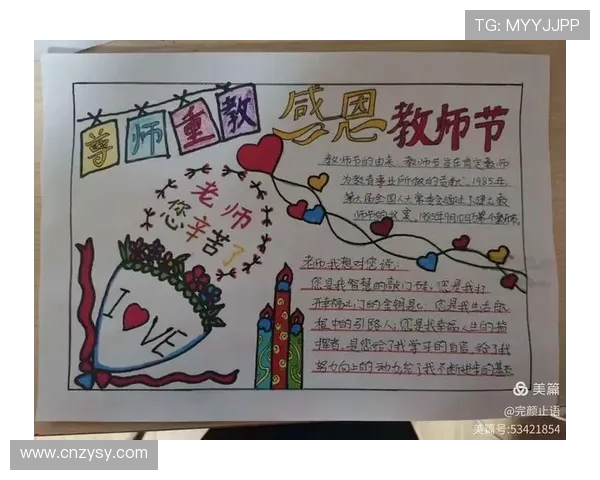 TG: MYYJJPP
尊师重教
感恩教师节
老师
您辛苦了
I ❤ VE
教师节的由来：教师节旨在肯定教师
为教育事业所做的贡献。1985年,
第六届全国人大常委会通过了建立教
师节的议案,
老师我想对您说：
您是我智慧的敲门砖，您是我打
开神秘之门的金钥匙；您是我生活旅
程中的引路人；您是我幸福人生的指
挥者，是您给了我学习的自信，给了我
努力向上的动力，给了我不断进步的
美篇
@完颜止语
美篇号:53421854
www.cnzysy.com